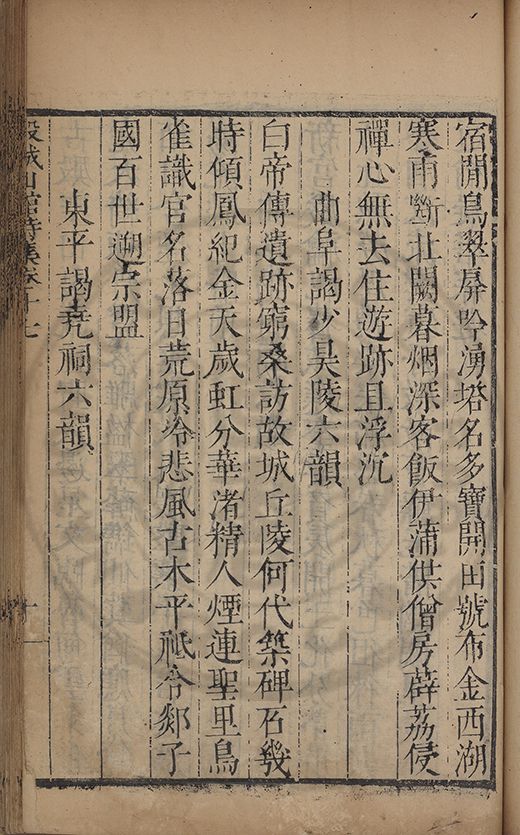 宿閒鳥翠屏吟湧塔名多寶開田號布金西湖
寒雨斷北闕暮烟深客飯伊蒲供僧房薜荔侵
禪心無去住遊跡且浮沉
曲阜謁少昊陵六韻
白帝傳遺跡窮桑訪故城丘陵何代築碑石幾
時傾鳳紀金天歲虹分華渚精人煙連聖里鳥
雀識官名落日荒原冷悲風古木平祗令郯子
國百世遡宗盟
東平謁尭祠六韻
穀城山館詩集卷十七
十一